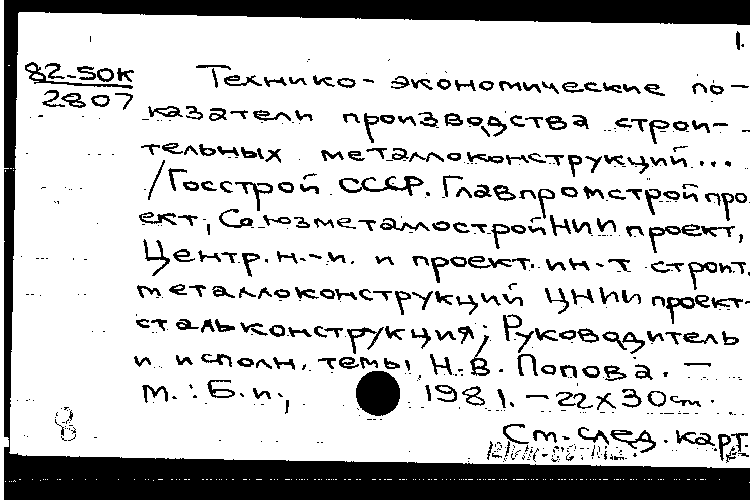 1.
82-50К
2807
Технико-экономические по-
казатели производства строи-
тельных металлоконструкций...
/Госстрой СССР. Главпромстройпро
ект, СоюзметаллостройНИИпроект,
Центр. н.-и. и проект. ин-т строит.
металлоконструкций ЦНИИпроект-
стальконструкция; Руководитель
и исполн. темы Н.В. Попова. —
М.: Б.и., 1981. — 22х30см.
8
См. след. карт